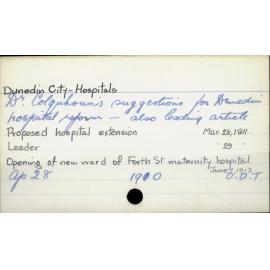 Dunedin City-Hospitals
Dr Colquhoun's suggestions for Dunedin
hospital reform – also leading article
Proposed hospital extension Mar. 28, 1911.
Leader " 29 "
Opening of new ward of Forth St maternity hospital.
June 7, 1913
Ap 28 1910 O.D.T.